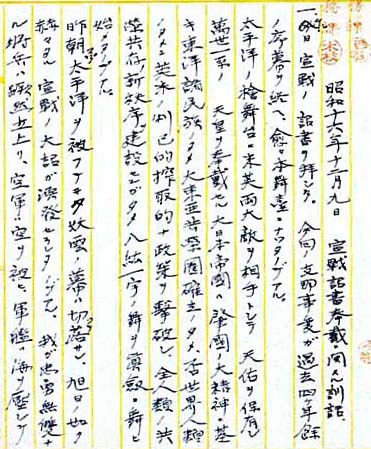 昭和十六年十二月九日　宣戦詔書奉戴ニ関スル訓話
一、今日宣戦ノ詔書ヲ拝シタ。今回ノ支那事変ガ過去四ケ年余
ノ序幕ヲ終ヘ、愈々本舞台ニナツタノデアル。
太平洋ノ桧舞台ニ米英両大敵ヲ相手トシテ　天佑ヲ保有シ
萬世一系ノ　天皇ヲ奉戴セル大日本帝国ハ肇国ノ大精神ニ基
キ東洋諸民族ノタメ大東亜共栄圏確立ノタメ、否世界人類
ノタメ英米ノ利己的搾取的ナ政策ヲ撃破シ、全人類ノ共
存共有ノ新秩序ヲ建設センガタメ八紘一宇ノ舞ヲ厳粛ニ舞ヒ
始メタノデアル。
昨朝太平洋ヲ被フテヰタ妖雲ノ幕ハ切落サレ、旭日ノ如ク
輝カシイ宣戦ノ大詔ガ渙発セラレタノデアル。我ガ忠勇無双ナ
ル将兵ハ蹶然立上リ、空軍ハ空ヲ被ヒ軍艦ハ海ヲ圧シテ